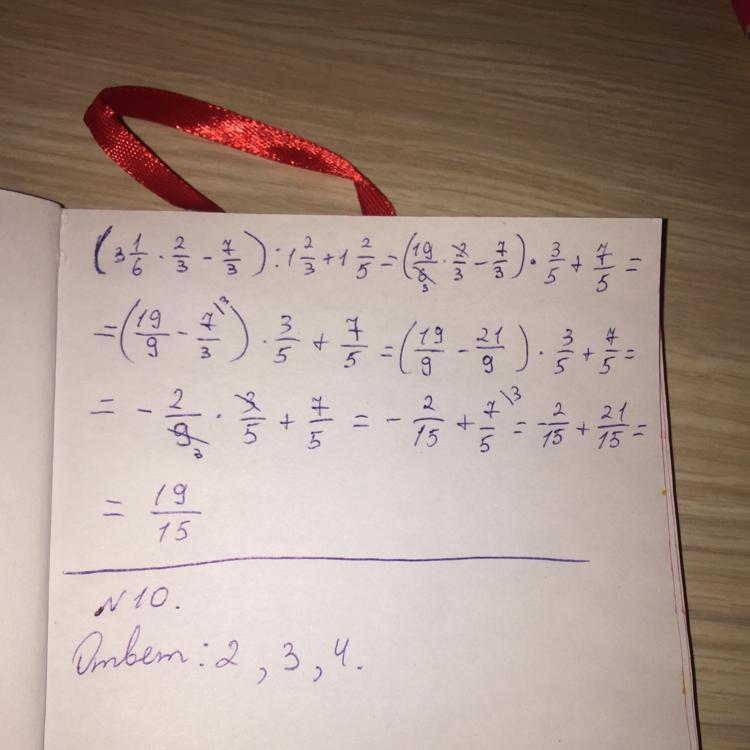 (3 1/6 · 2/3 - 7/3) : 1 2/3 + 1 2/5 = (19/6 3 · 2/3 - 7/3) · 3/5 + 7/5 =
= (19/9 - 7/3 \3) · 3/5 + 7/5 = (19/9 - 21/9) · 3/5 + 7/5 =
= - 2/9 3 · 3/5 + 7/5 = - 2/15 + 7/5 \3 = - 2/15 + 21/15 =
= 19/15
№ 10.
Ответ: 2, 3, 4.